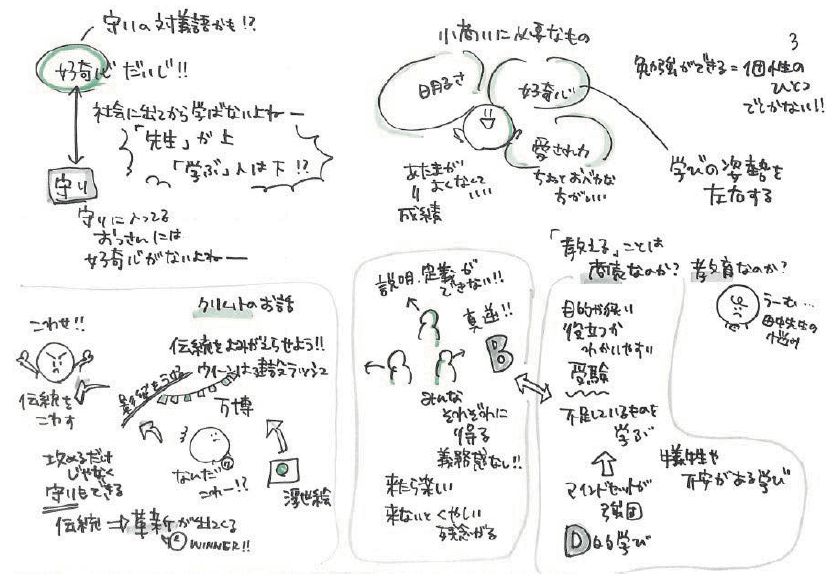 守りの対義語かも!?
好奇心だいじ!!
社会に出てから学ばないよねー
「先生」が上
「学ぶ」人は下!?
守り
守りに入ってる
おっさんには
好奇心がないよねー
小商いに必要なもの
明るさ
好奇心
愛され力
あたまが
よくなくて
いい
成績
ちょっとおバカな
方がいい
3
勉強ができる=個性の
ひとつ
でしかない!!
学びの姿勢を
左右する
クリムトのお話
こわせ!!
伝統を
こわす
伝統をよみがえらせよう!!
ウィーンは建設ラッシュ
万博
なんだ
これー!?
浮世絵
攻めるだけ
じゃなく
守りもできる
伝統⇒革新が出てくる
WINNER!!
説明・定義が
できない!!
真逆!!
B
みんな
それぞれに
得る
義務感なし!!
来たら楽しい
来ないとくやしい
残念がる
「教える」ことは
商売なのか?教育なのか?
うーむ…
田中先生の
悩み
目的が狭い
役立つか
わかりやすい
受験
不足しているものを
学ぶ
マインドセットが
強固
D的学び
犠牲や
不安がある学び